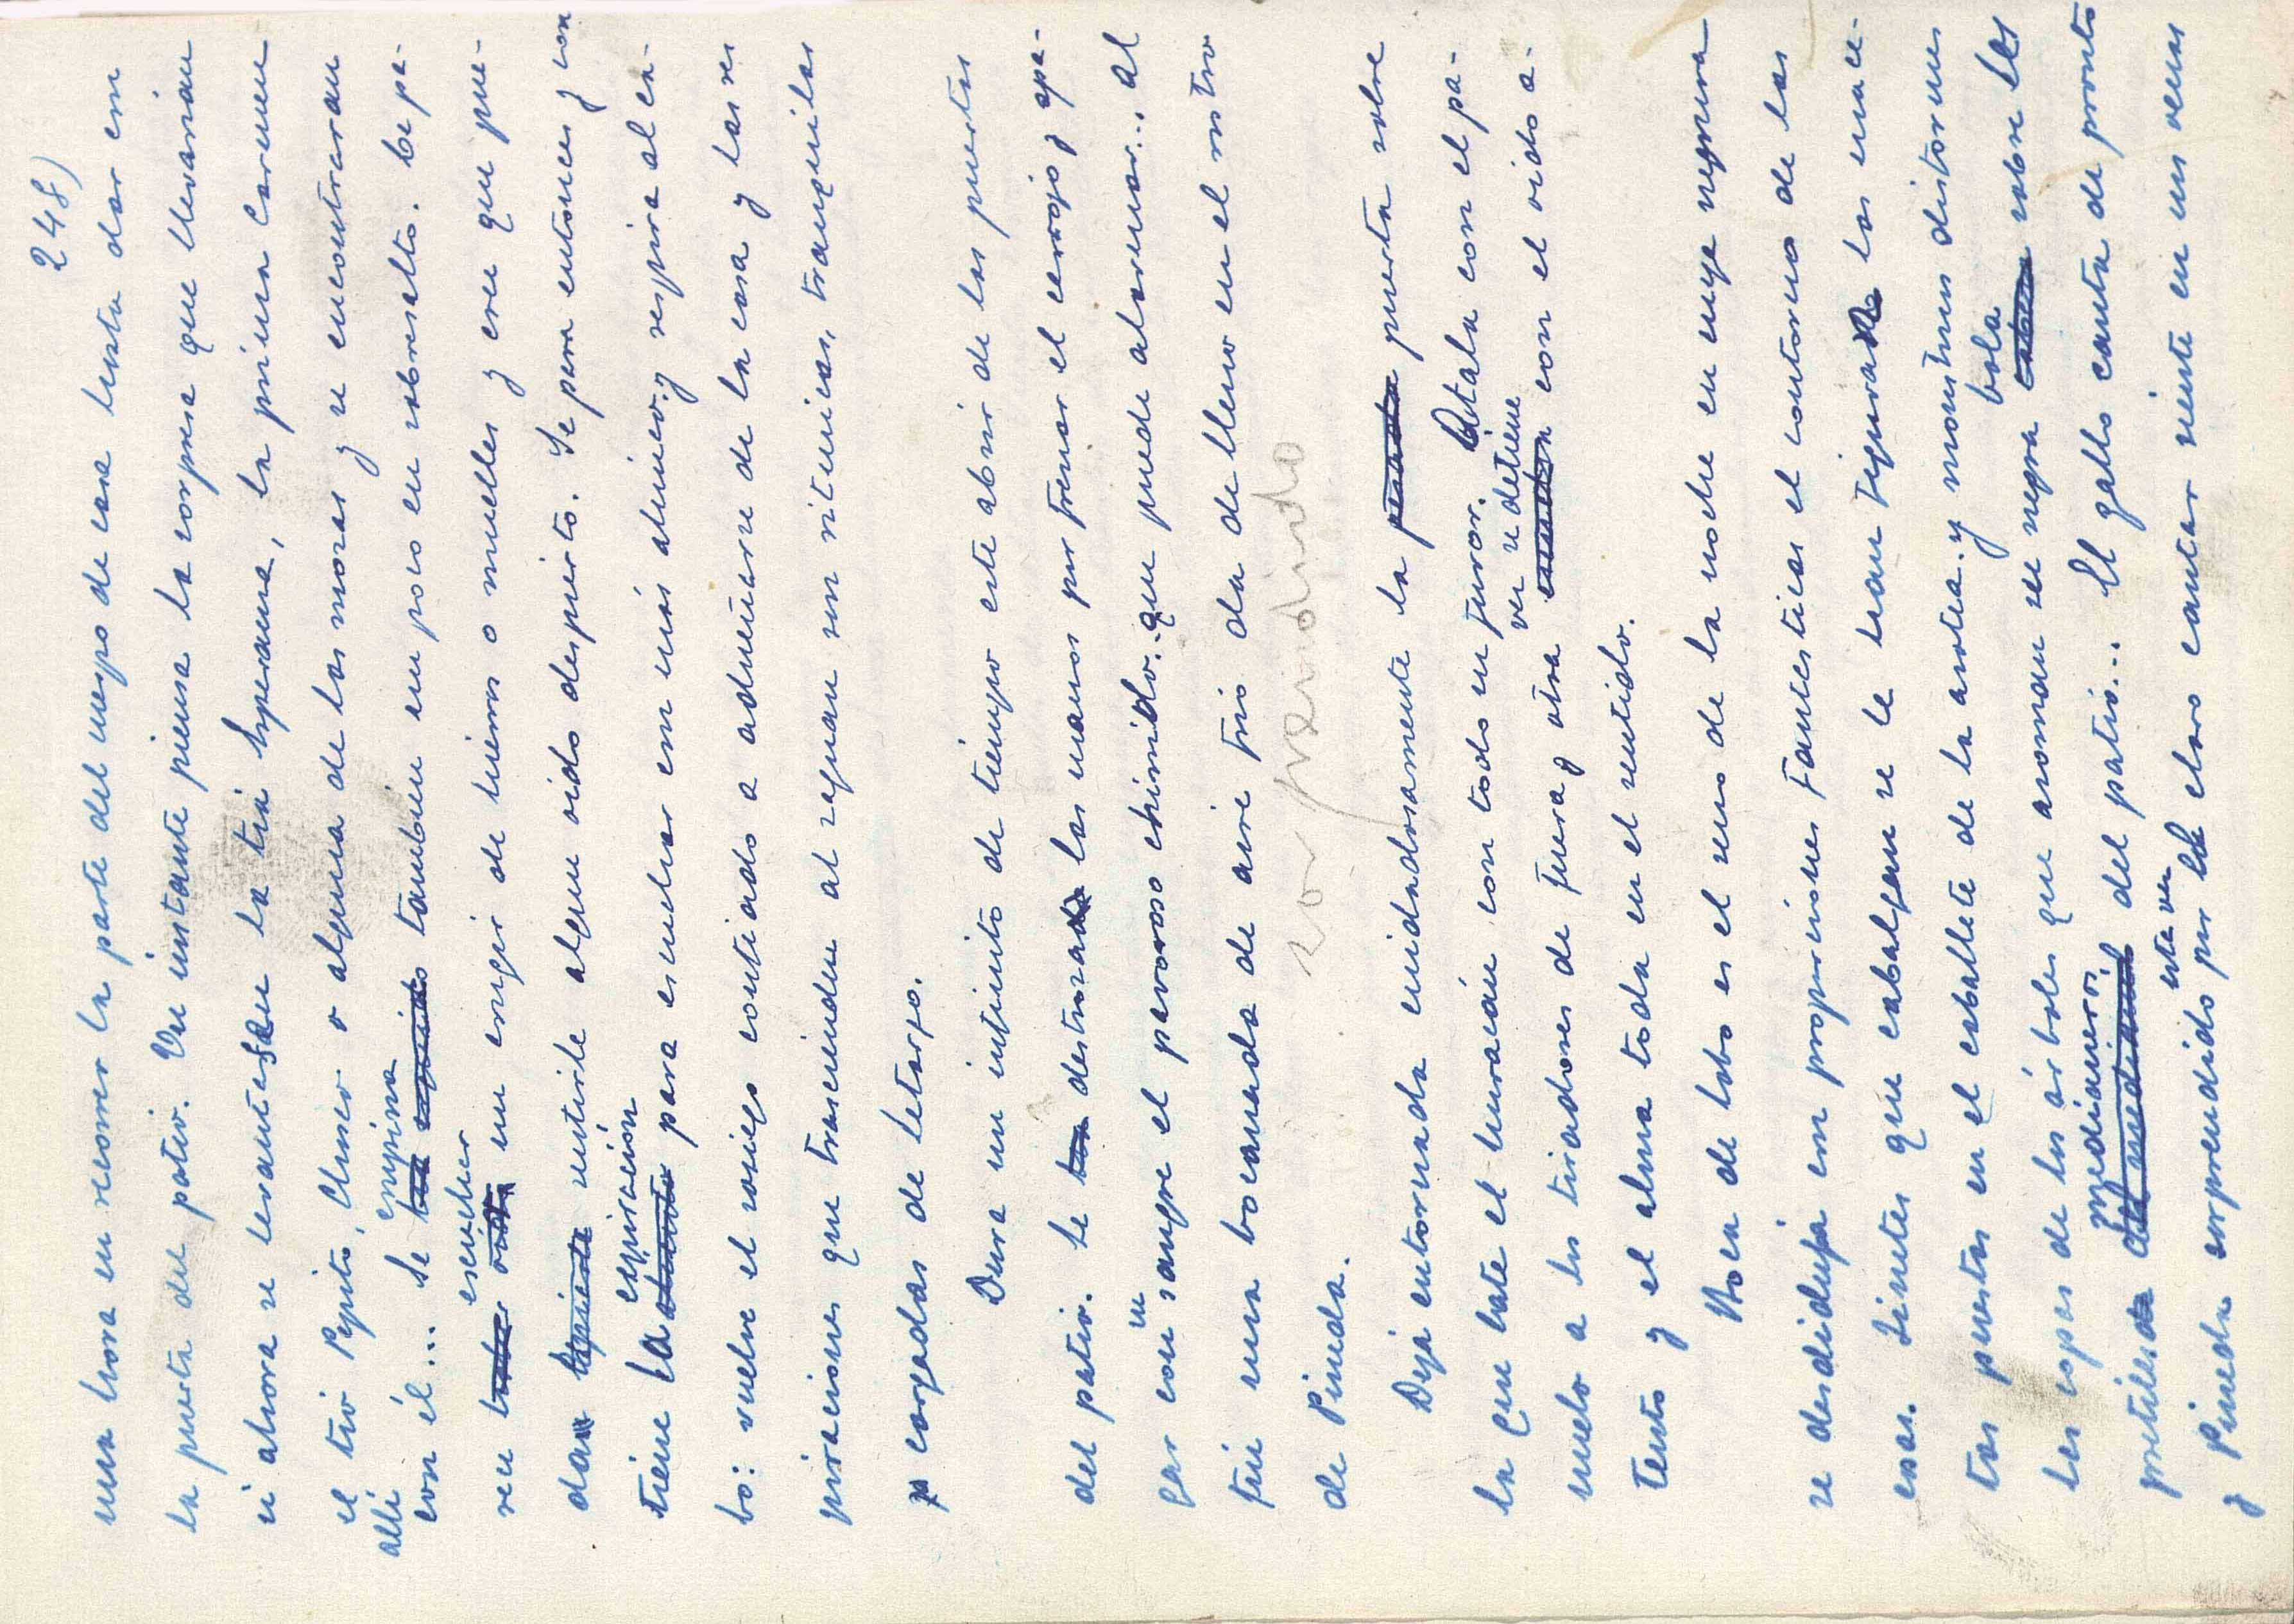 248)
una hora en recorrer la parte del cuerpo de casa hasta dar con
la puerta del patio. Un instante piensa la sorpresa que llevarian
si ahora se levantesen la tía Esperanza, la prima Carmen
el tío Pepito, Chisco o alguna de las mozas y se encontraran
allí
con él... Se empina también un poco en sobresalto. Le pa-
rece escuchar un crugir de hierros o muelles y cree que pue-
da sentirle algun oido despierto. Se para entonces y con
tiene la espiración para escuchar con más ahinco. y respira al ca-
bo: vuelve el sosiego contiado a adueñarse de la casa y las res
piraciones que trascienden al zaguan son rítmicas, tranquilas
y cargadas de letargo.
Dura un infinito de tiempo este abrir de las puertas
del patio. Se destroza las manos por frenar el cerrojo y apa-
gar con su sangre el pavoroso chirrido. que puede alarmar... Al
fin una bocanada de aire frio da de lleno en el rostro
de Pineda.
sorprendido
Deja entornada cuidadosamente la puerta sobre
la que bate el huracán con todo su furor. Atala con el pa-
ñuelo a los tiradores de fuera y otra vez se detiene con el oido a-
tento y el alma toda en el sentido.
Boca de lobo es el uno de la noche en cuya negrura
se desdibuja con proporciones fantasticas el contorno de las
cosas. Jinetes que cabalgan se le hacen figura las mace-
tas puestas en el caballete de la azotea. y monstruos distormes
las copas de los árboles que asoman su negra bola sobre los
pretiles medianeros, del patio... El gallo canta de pronto
y Pineda sorprendido esta vez por el claro cantar siente en sus venas